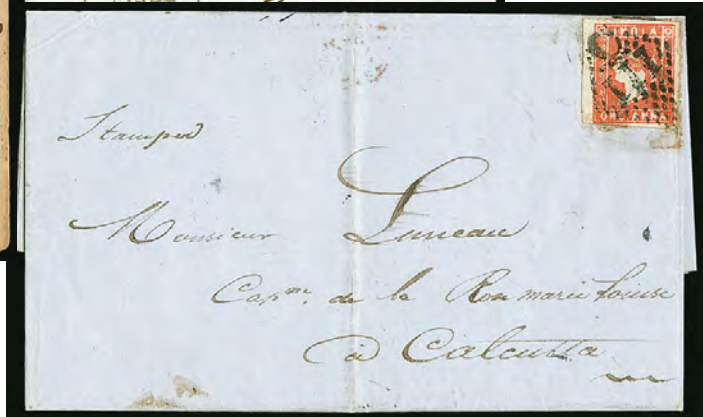 INDIA
ONE ANNA
Stamped
Monsieur Luneau
Capne. de la marie Louise
à Calcutta